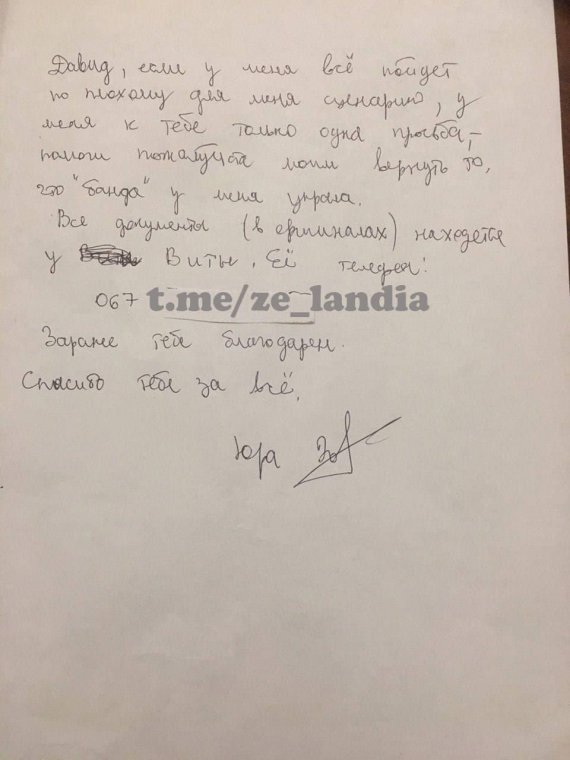 Давид, если у меня всё пойдет
по плохому для меня сценарию, у
меня к тебе только одна просьба, –
помоги пожалуйста моим вернуть то,
что "банда" у меня украла.
Все документы (в оригиналах) находетьс
у Виты. Её телефон:
067 t.me/ze_landia
Заране тебе благодарен.
Спасибо тебе за всё,
Юра